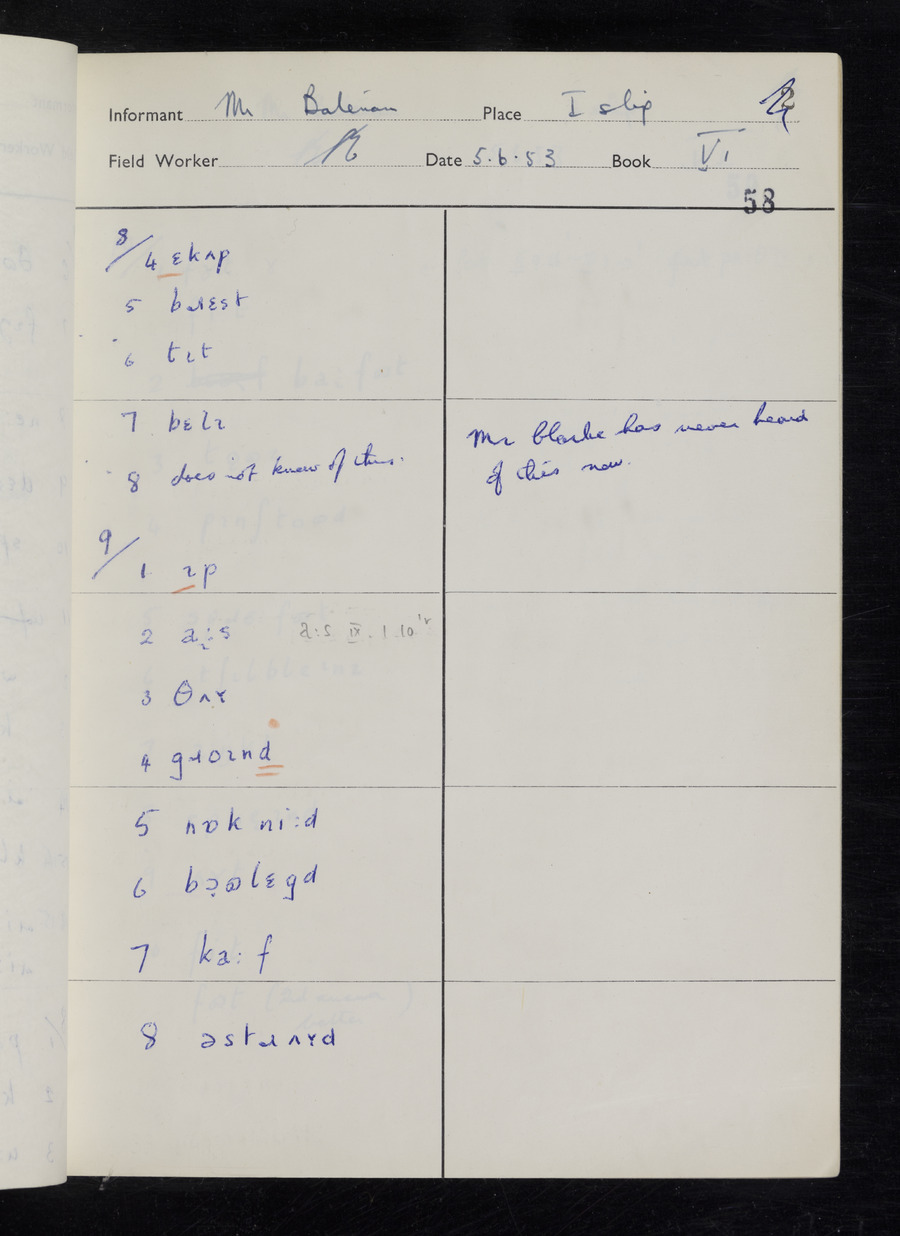 Informant Mr Bateman Place Islip
Field Worker Date 5.6.53 Book VI
58
8/ 4 ɛkʌp
5 bɹɛst
6 tɪt
7 bɛlɪ
8 does not know of this.
Mr Clarke has never heard
of this now.
9/ 1 ɪp
2 a:s a:s IX.1.10
3 θʌɤ
4 gɹʊɪnd
5 nɒk ni:d
6 lɛgd
7 ka:f
8 əstɹʌɤd